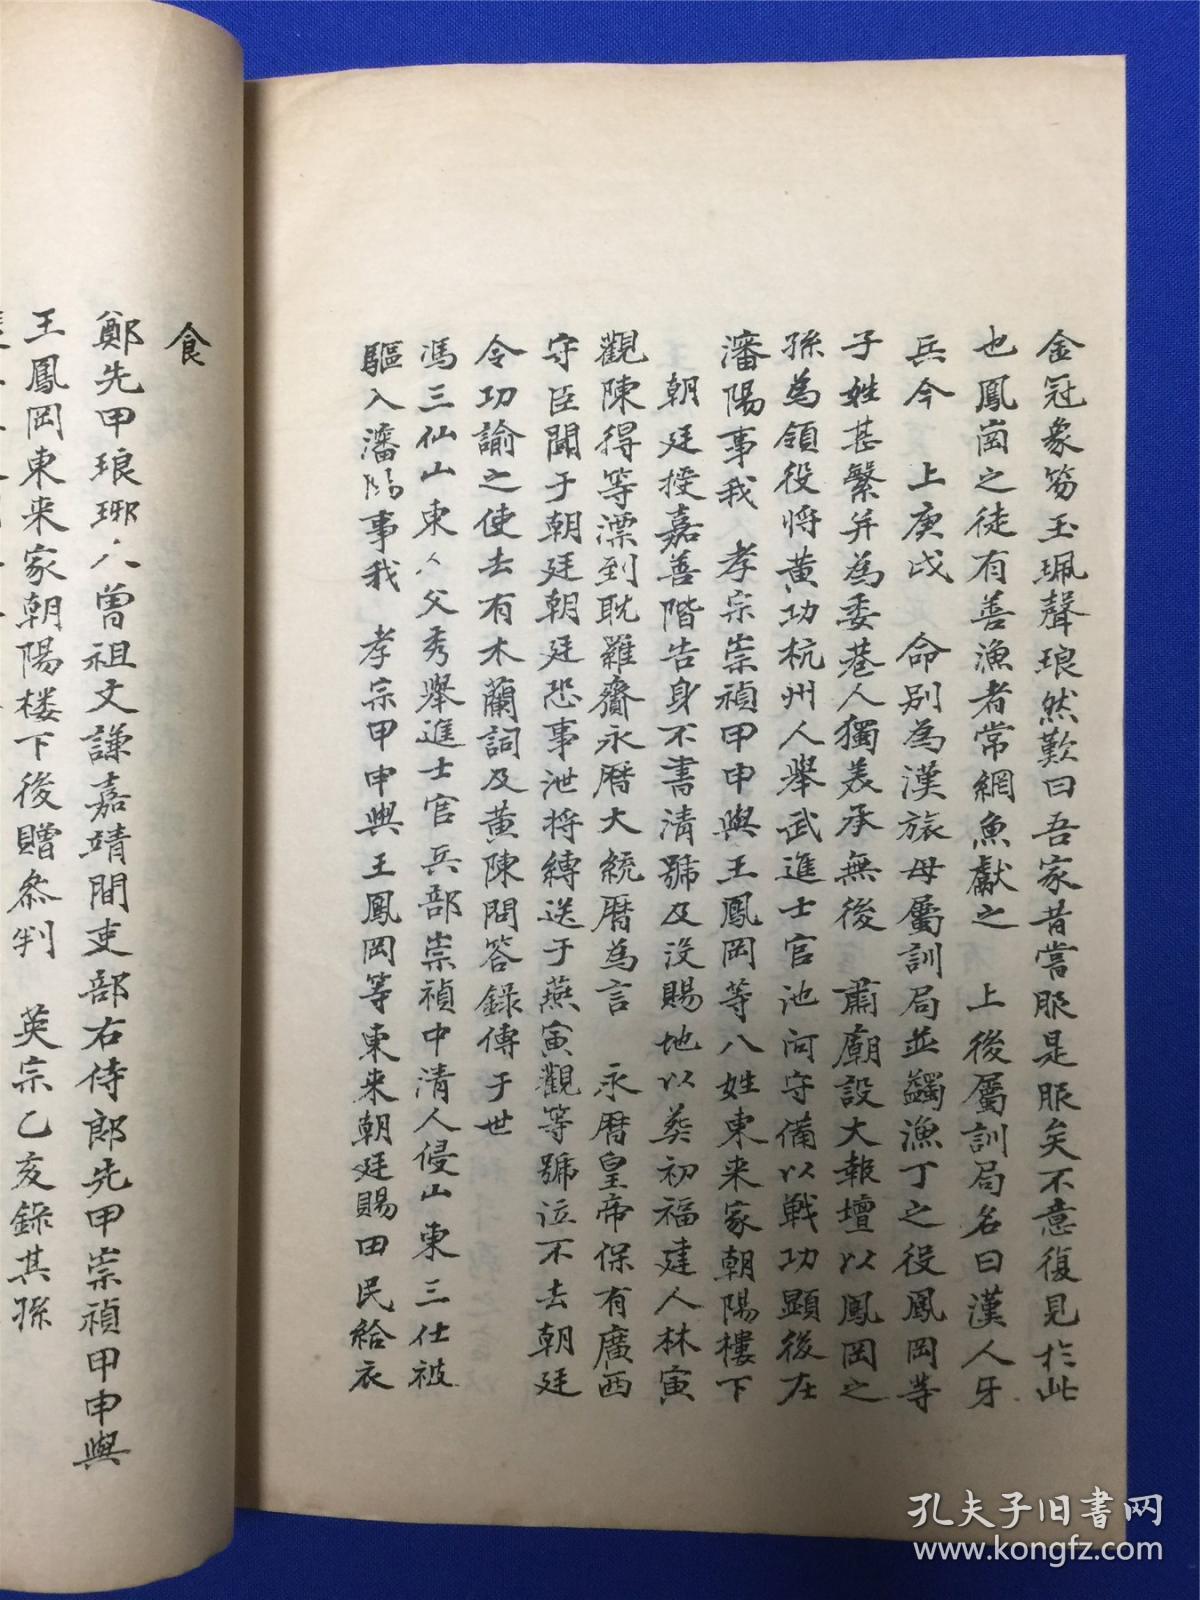 金冠象笏玉珮聲琅然歎曰吾家昔嘗服是服矣不意復見於此
也鳳崗之徒有善漁者常網魚獻之　上後屬訓局名曰漢人牙
兵今　上庚戌　命別為漢旅毋屬訓局並蠲漁丁之役鳳岡等
子姓甚繁并為委巷人獨美承無後　肅廟設大報壇以鳳岡之
孫為領役將黃功杭州人舉武進士官池河守備以戰功顯後在
瀋陽事我　孝宗崇禎甲申與王鳳岡等八姓東来家朝陽樓下
朝廷授嘉善階告身不書清號及沒賜地以葬初福建人林寅
觀陳得等漂到耽羅齎永曆大統曆為言　永曆皇帝保有廣西
守臣聞于朝廷朝廷恐事泄将縛送于燕寅觀等號泣不去朝廷
令功諭之使去有木蘭詞及黃陳問答錄傳于世
馮三仙山東人父秀舉進士官兵部崇禎中清人侵山東三仕被
驅入瀋陽事我　孝宗甲申與王鳳岡等東来朝廷賜田民給衣
食
鄭先甲琅琊人曾祖文謙嘉靖間吏部右侍郎先甲崇禎甲申與
王鳳岡東来家朝陽楼下後贈叅判　英宗乙亥錄其孫
孔夫子旧书网
www.kongfz.com